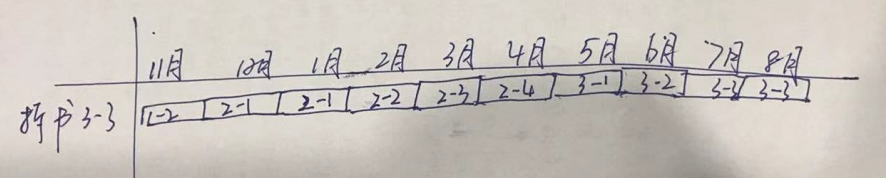 11月 12月 1月 2月 3月 4月 5月 6月 7月 8月
拆书3-3 1-2 2-1 2-1 2-2 2-3 2-4 3-1 3-2 3-3 3-3